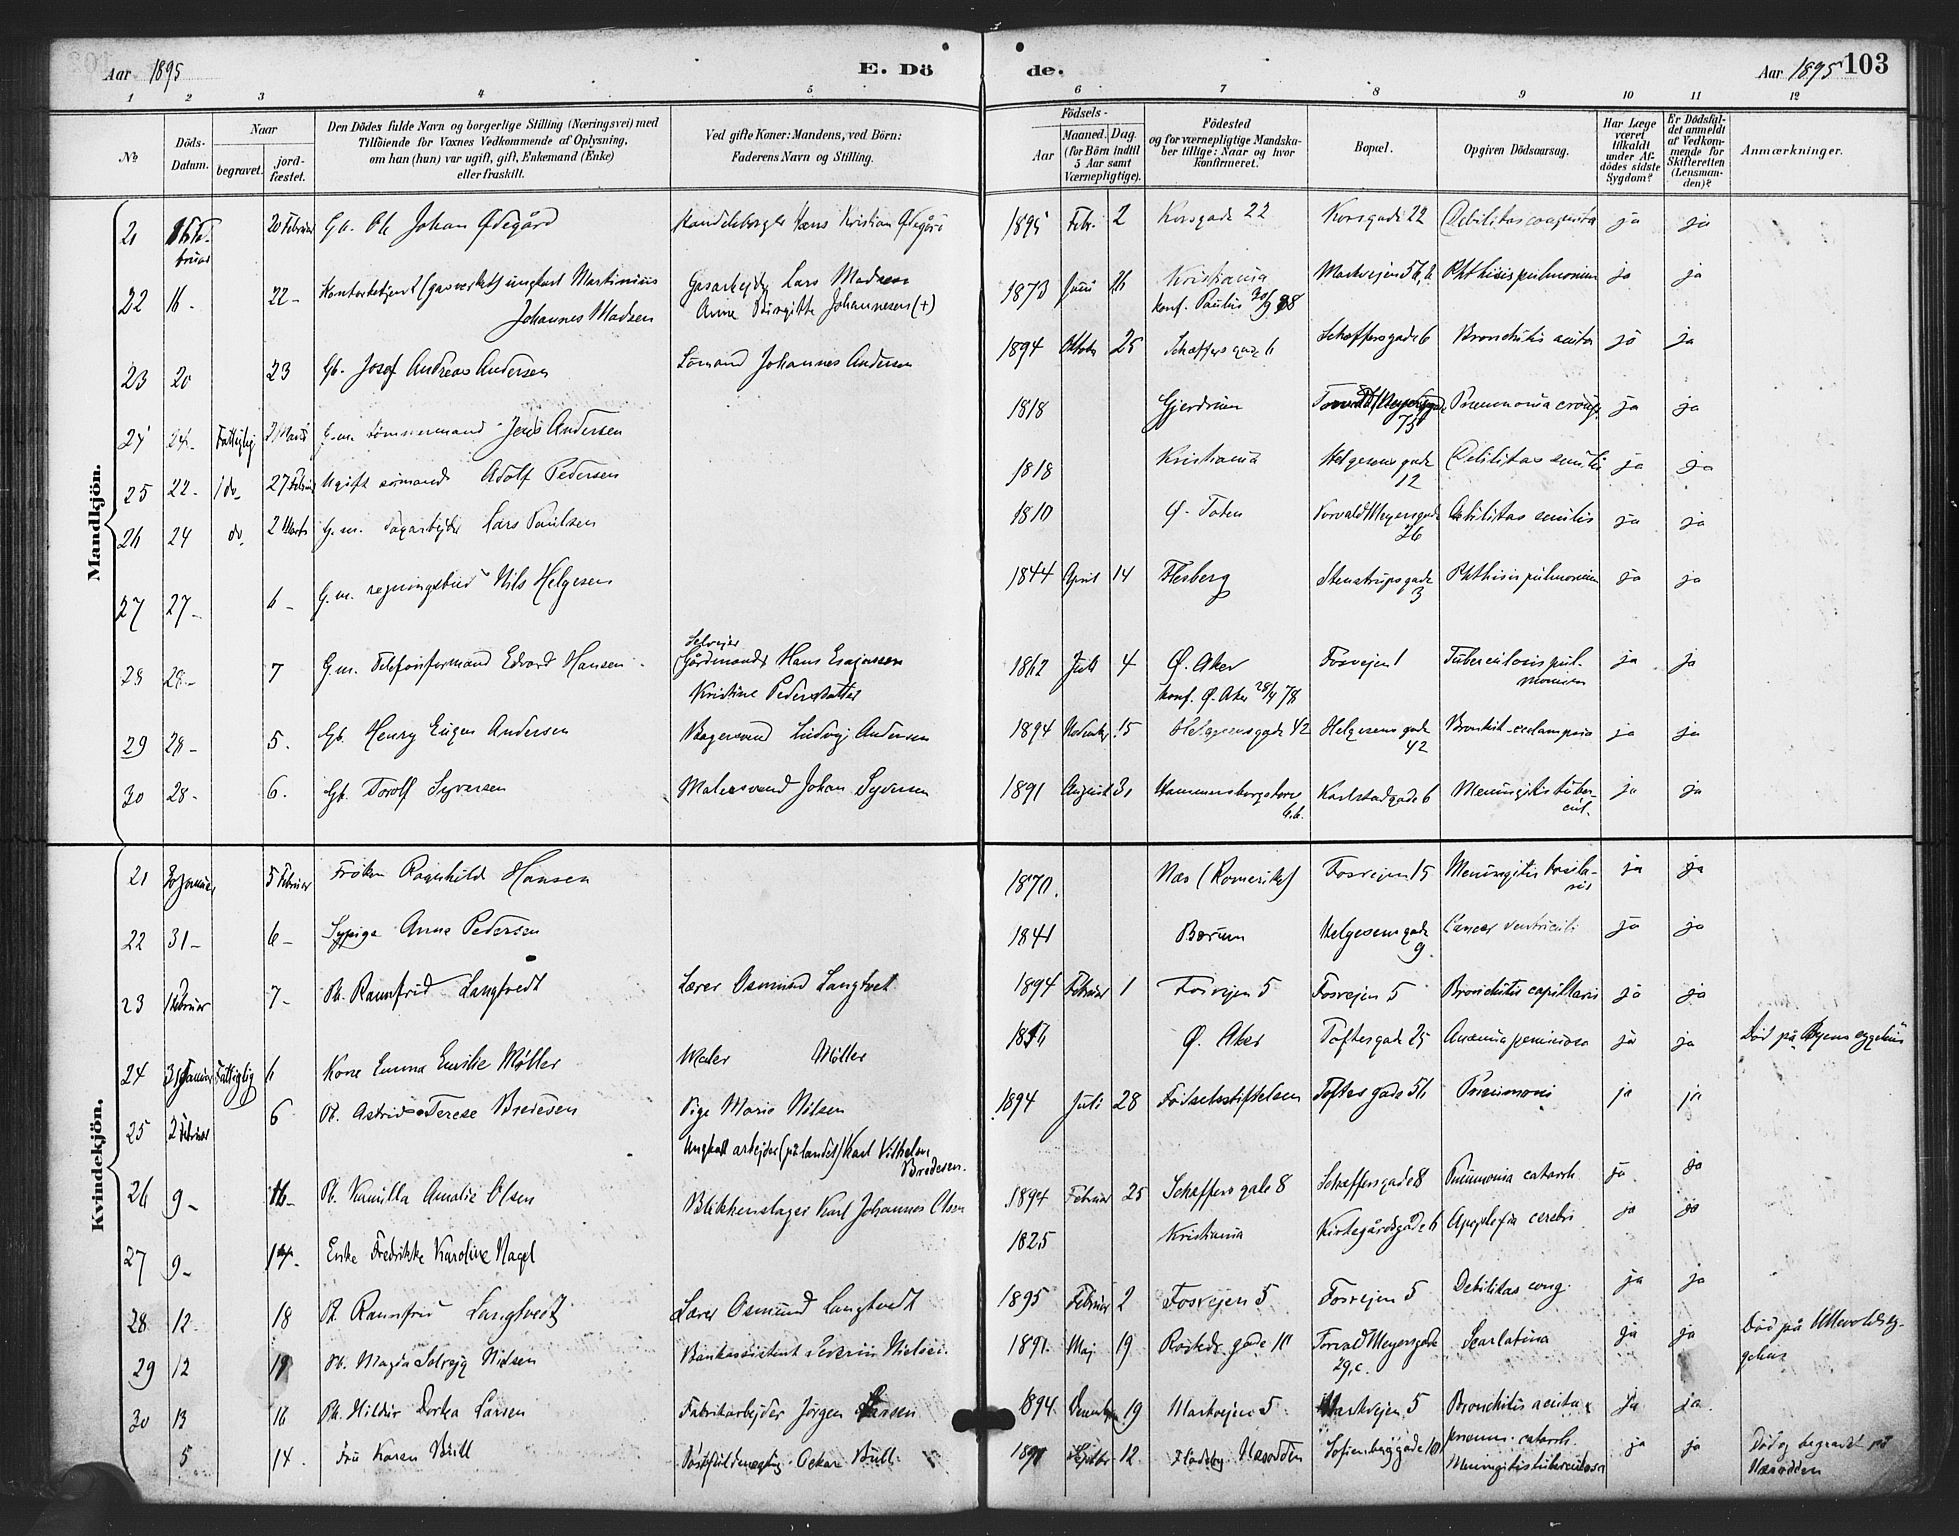 Aar 1895 E. Dö de. Aar 1895 103
1 2 3 4 5 6 7 8 9 10 11 12
No Döds-Datum. Naar begravet. jord-fæstet. Den Dödes fulde Navn og borgerlige Stilling (Næringsvei) med Tilföiende for Voxnes Vedkommende af Oplysning, om han (hun) var ugift, gift, Enkemand (Enke) eller fraskilt. Ved gifte Koner: Mandens, ved Börn: Faderens Navn og Stilling. Födsels- Aar Maaned. Dag. (for Börn indtil 5 Aar samt Værnepligtige). Födested og for værnepligtige Mandskaber tillige: Naar og hvor konfirmeret. Bopæl. Opgiven Dödsaarsag. Har Læge været tilkaldt under Afdödes sidste Sygdom? Er Dødsfaldet anmeldt af Vedkommende for Skifteretten (Lensmanden)? Anmærkninger.
Mandkjön.
21 Februar 20 Februar Gb. Johan Ødegård Kristian Ødegård 1895 Febr. 2 Korsgade 22 Korsgade 22 Debilitas congenita ja ja
22 16- 22- (gasverket) ungkarl Martinius Johannes Madsen Gasarbejder Lars Madsen Anne Birgitte Johannesen (+) 1873 Juni 26 Kristiania konf. Paulus Markvejen Phthisis pulmonum ja ja
23 20 23 Gb. Josef Andreas Andersen Sömand Johannes Andersen 1894 Oktober 25 Schæffersgade 6 Schæffersgade 6 Bronchitis acuta ja ja
24 24- Fattiglig 2 Marts G.m. tömmermand Jens Andersen 1818 Gjerdrum 75 Pneumonia croup. ja ja
25 22- do- 27 Februar Ugift sömand Adolf Pedersen 1818 Kristiania Helgesens gade 12 Debilitas senilis ja ja
26 24 do. 2 Marts G.m. Dagarbejder Lars Paulsen 1810 Ø. Toten Torvald Meyersgade 26 Debilitas senilis ja ja
27 27- 6- G.m. regningsbud Nils Helgesen 1844 April 14 Flesberg Stenstrupsgade 3 Phthisis pulmonum ja ja
28 28- 7 G.m. Telefonformand Edvard Hansen Selvejer Gårdmand Hans Esajassen Kristine Pedersdatter 1862 Juli 4 Ø. Aker konf. Ø. Aker 78 Fosvejen 1 Tuberculosis pulmonum ja ja
29 28- 5. Gb. Henry Eugen Andersen Bagersvend Ludvig Andersen 1894 November 15 Helgesensgade 42 Helgesens gade 42 Bronkit. eclampsia ja ja
30 28- 6. Gb. Torolf Syversen Malersvend Johan Syversen 1891 August 31 Hammersborgstorv Karlstadgade 6 Meningitis tubercul. ja ja
Kvindekjön.
21 30 Januar 5 Februar Fröken Ragnhild Hansen 1870. Næs (Romerike) Fosvejen 15 Meningitis basilaris ja ja
22 31- 6- Sypige Anna Pedersen 1841 Bærum Helgesens gade 9 Cancer ventriculi ja ja
23 1 Februar 7- Pb. Rannfrid Langtvedt Lærer Osmund Langtvet 1894 Februar 1 Fosvejen 5 Fosvejen 5 Bronchitis capillaris ja ja
24 31 Januar Fattiglig 6 Kone Emma Emilie Möller Maler Möller Ø. Aker Toftesgade 25 Anæmia perniciosa ja ja Död på Byens sygehus
25 2 Februar 6 Pb. Astrid Terese Bredesen Pige Marie Nilsen 1894 Juli 28 Födselsstiftelsen Toftes gade 56 Pneumoni ja ja
Ungkarl arbejder (på landet) Karl Vilhelm Bredesen.
26 9- 16- Pb. Kamilla Amalie Olsen Blikkenslager Karl Johannes Olsen 1894 Februar 25 Schæffersgade 8 Schæffersgade 8 Pneumonia catarrh. ja ja
27 9- 14- Enke Fredrikke Karoline Nagel 1825 Kristiania Kirkegårdsgade 6 Apoplexia cerebri ja ja
28 12- 18 Pb. Rannfrid Langtvedt Lærer Osmund Langtvedt 1895 Februar 2 Fosvejen 5 Fosvejen 5 Debilitas cong. ja ja
29 12 19 Pb. Magda Solvejg Nielsen Bankassistent Severin Nielsen 1891 Maj 19 Torvald Meyersgade 29, c. Scarlatina ja ja Död på Ullevolds sygehus
30 13 16 Pb. Hildur Dorthea Larsen Fabrikarbejder Jörgen Larsen 1894 December 19 Markvejen 5 Markvejen 5 Bronchitis acuta ja ja
5 14. Fru Karen Bull Oskar Bull Septbr. 12 Næsodden Sofienberggade pneum. catarrh. Meningitis tuberculosa ja ja Död og begravet på Næsodden